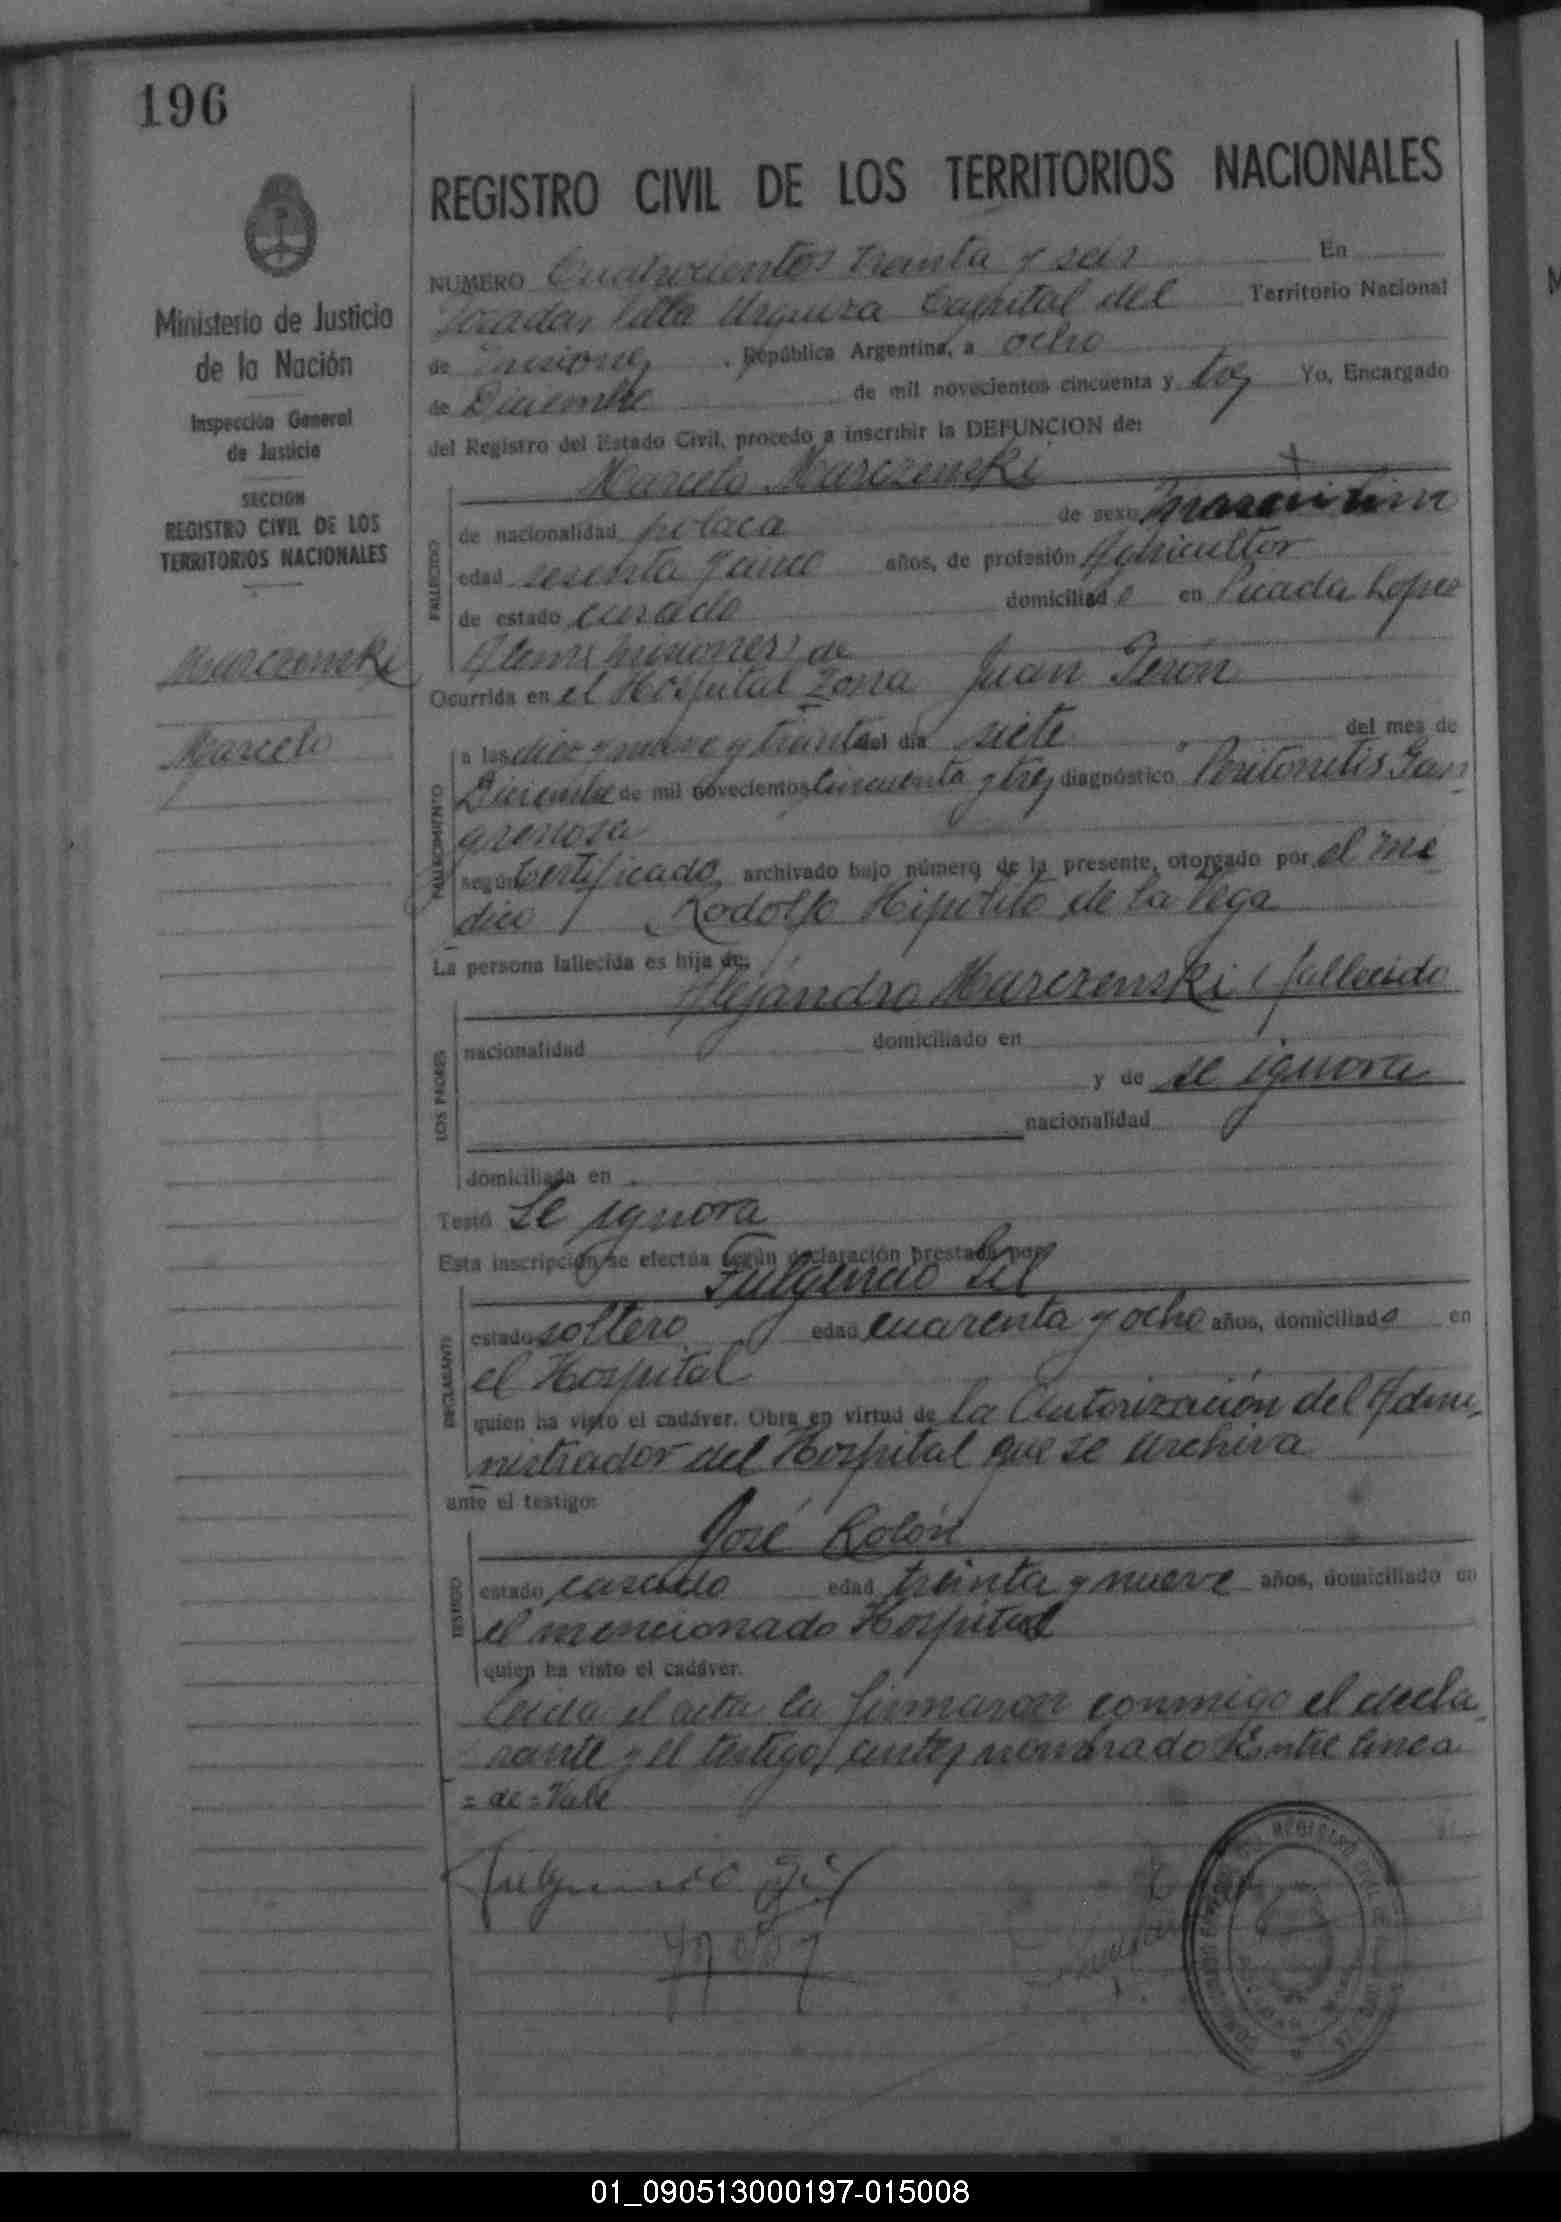 196
REGISTRO CIVIL DE LOS TERRITORIOS NACIONALES
Ministerio de Justicia
de la Nación
Inspección General
de Justicia
SECCION
REGISTRO CIVIL DE LOS
TERRITORIOS NACIONALES
Marczenski
Marcelo
NUMERO Cuatrocientos treinta y seis En
Posadas Villa Urquiza Capital del Territorio Nacional
de Misiones, República Argentina, a ocho
de Diciembre de mil novecientos cincuenta y tres Yo, Encargado
del Registro del Estado Civil, procedo a inscribir la DEFUNCION de:
Marcelo Marczenski
FALLECIDO
de nacionalidad polaca de sexo masculino
edad sesenta y cinco años, de profesión Agricultor
de estado casado domiciliado en Picada Lopez
Alem (Misiones) de
Ocurrida en el Hospital Zona Juan Perón
FALLECIMIENTO
a las diez y nueve y treinta del día siete del mes de
Diciembre de mil novecientos cincuenta y tres diagnóstico Peritonitis Gan-
grenosa
según certificado archivado bajo número de la presente, otorgado por el me
dico Rodolfo Hipolito de la Vega
La persona fallecida es hija de:
Alejandro Marczenski (fallecido
LOS PADRES
nacionalidad domiciliado en
y de se ignora
nacionalidad
domiciliada en
Testó Se ignora
Esta inscripción se efectúa según declaración prestada por
Fulgencio Gil
DECLARANTE
estado soltero edad cuarenta y ocho años, domiciliado en
el Hospital
quien ha visto el cadáver. Obra en virtud de la Autorización del Admi-
nistrador del Hospital que se archiva
ante el testigo:
José Rolón
TESTIGO
estado casado edad treinta y nueve años, domiciliado en
el mencionado Hospital
quien ha visto el cadáver.
Leida el acta la firmaron conmigo el decla-
rante y el testigo antes nombrado Entre linea
= de = Vale
Fulgencio Gil
01_090513000197-015008